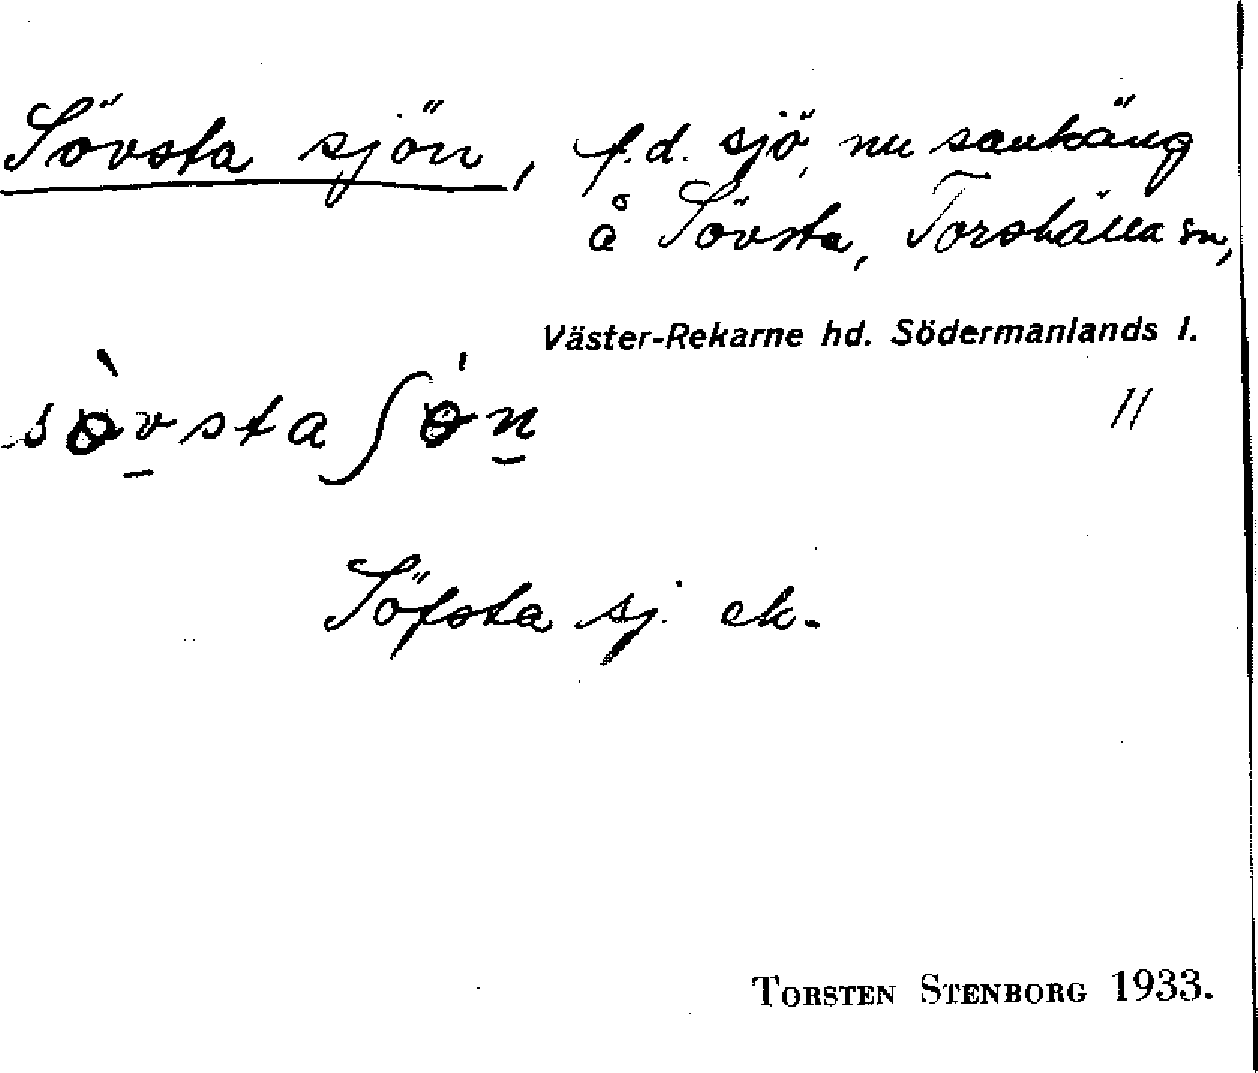 Sövsta sjön, f.d. sjö, nu sankäng
å Sövsta, Torshälla sn,
Väster-Rekarne hd. Södermanlands l.
sɵ̀vsta ʃɵ́n
11
Söfsta sj. ek.
TORSTEN STENBORG 1933.